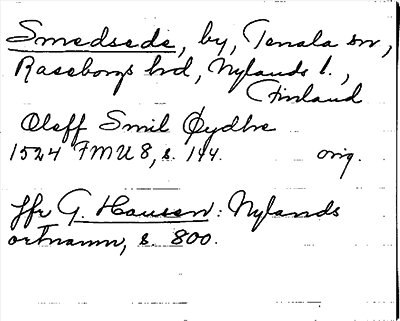 Smedsede, by, Tenala sn,
Raseborgs hd, Nylands l.,
Finland
Oleff Smil Øydhe
1524 FMU 8, s. 144. orig.
Jfr G. Hausen: Nylands
ortnamn, s. 800.